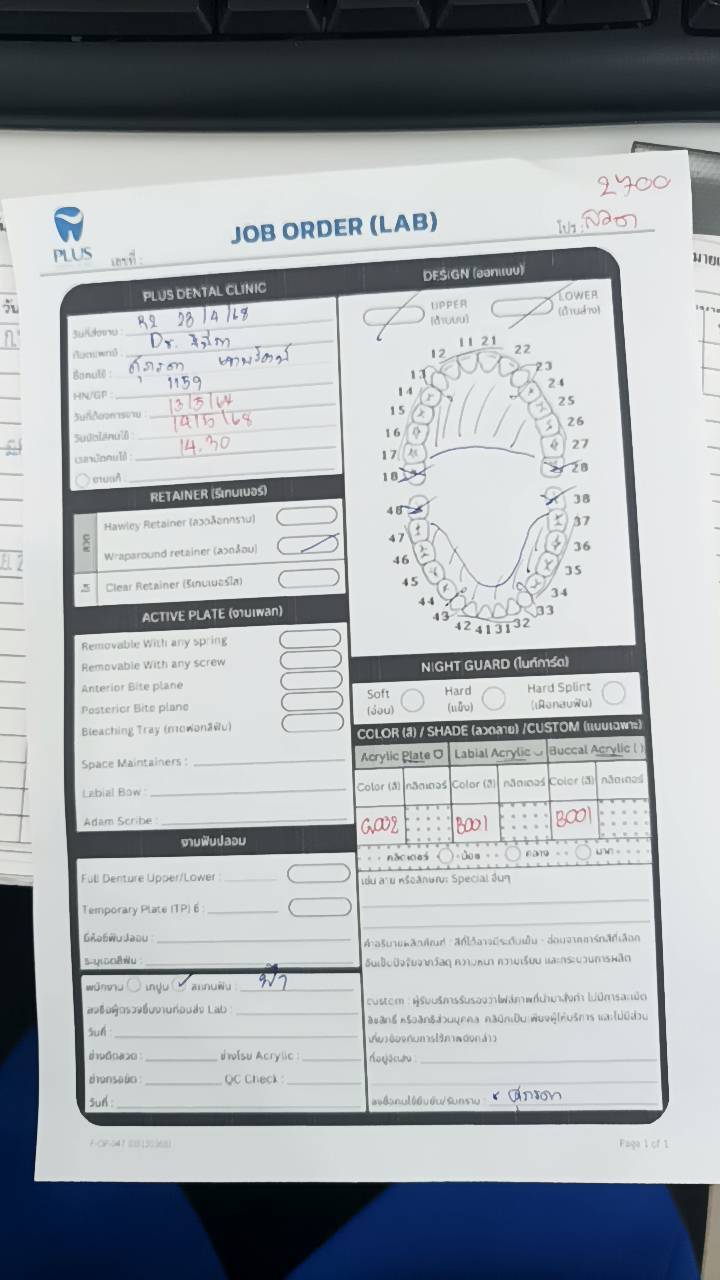 2700
PLUS
JOB ORDER (LAB)
เลขที่ :
โปร :
PLUS DENTAL CLINIC
วันที่ส่งงาน : R2 28/4/68
ทันตแพทย์ : Dr.
ชื่อคนไข้ : ศุภรดา
HN/GP : 1159
วันที่ต้องการงาน : 13/5/68
วันนัดใส่คนไข้ : 14/5/68
เวลานัดคนไข้ : 14.30
งานแก้
RETAINER (รีเทนเนอร์)
ลวด
Hawley Retainer (ลวดล็อกกราม)
Wraparound retainer (ลวดล้อม)
ใส
Clear Retainer (รีเทนเนอร์ใส)
ACTIVE PLATE (งานเพลท)
Removable With any spring
Removable With any screw
Anterior Bite plane
Posterior Bite plane
Bleaching Tray (ถาดฟอกสีฟัน)
Space Maintainers :
Labial Bow :
Adam Scribe :
งานฟันปลอม
Full Denture Upper/Lower :
Temporary Plate (TP) ซี่ :
ยี่ห้อซี่ฟันปลอม :
ระบุเฉดสีฟัน :
พนักงาน เทปูน สแกนฟัน : ฟ้า
ลงชื่อผู้ตรวจชิ้นงานก่อนส่ง Lab :
วันที่ :
ช่างดัดลวด : ช่างโรย Acrylic :
ช่างกรอขัด : QC Check :
วันที่ :
DESIGN (ออกแบบ)
UPPER (ด้านบน)
LOWER (ด้านล่าง)
11 21
12 22
13 23
14 24
15 25
16 26
17 27
18 28
48 38
47 37
46 36
45 35
44 34
43 33
42 41 31 32
NIGHT GUARD (ไนท์การ์ด)
Soft (อ่อน)
Hard (แข็ง)
Hard Splint (เฝือกสบฟัน)
COLOR (สี) / SHADE (ลวดลาย) /CUSTOM (แบบเฉพาะ)
Acrylic Plate Labial Acrylic Buccal Acrylic ( )
Color (สี) กลิตเตอร์ Color (สี) กลิตเตอร์ Color (สี) กลิตเตอร์
G002 B001 B001
กลิตเตอร์ น้อย กลาง มาก
เช่น ลาย หรือลักษณะ Special อื่นๆ
คำอธิบายผลิตภัณฑ์ : สีที่ได้อาจมีระดับเข้ม - อ่อนจากชาร์ทสีที่เลือก
อันเป็นปัจจัยจากวัสดุ ความหนา ความเรียบ และกระบวนการผลิต
custom : ผู้รับบริการรับรองว่าไฟล์ภาพที่นำมาสั่งทำ ไม่มีการละเมิด
ลิขสิทธิ์ หรือสิทธิส่วนบุคคล คลินิกเป็นเพียงผู้ให้บริการ และไม่มีส่วน
เกี่ยวข้องกับการใช้ภาพดังกล่าว
ที่อยู่จัดส่ง :
ลงชื่อคนไข้ยืนยัน/รับทราบ : x ศุภรดา
Page 1 of 1